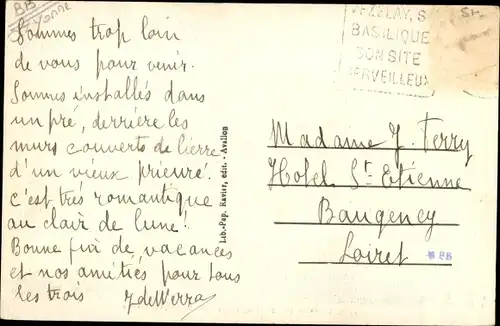 BB
Yonne
Sommes trop loin
de vous pour venir.
Sommes installés dans
un pré, derrière les
murs couverts de lierre
d'un vieux prieuré.
C'est très romantique
au clair de lune!
Bonne fin de vacances
et nos amitiés pour tous
les trois
J de Werra
Lib.-Pap. Ravier, édit. - Avallon
VEZELAY, S
BASILIQUE
SON SITE
MERVEILLEUX
Madame J. Ferry
Hotel St Etienne
Baugency
Loiret